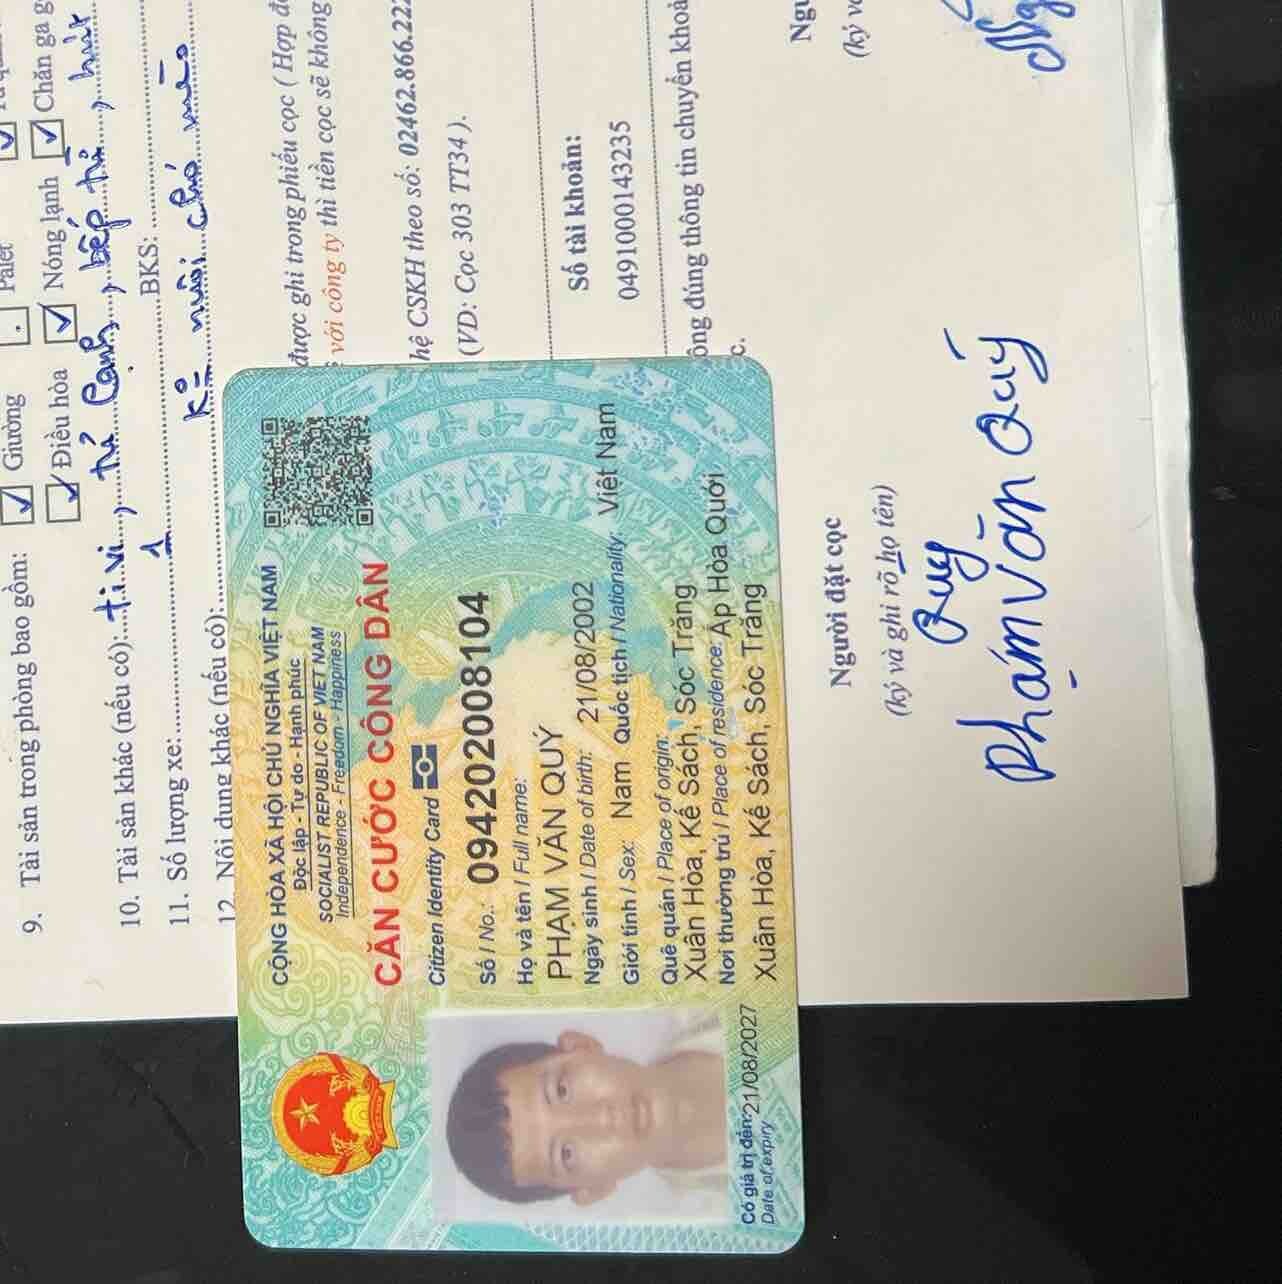 Palet
9. Tài sản trong phòng bao gồm: Giường
Điều hòa Nóng lạnh Chăn ga g
10. Tài sản khác (nếu có): ti vi, tủ lạnh, bếp từ, hút
11. Số lượng xe: 1 BKS:
12. Nội dung khác (nếu có): K° nuôi chó mèo
được ghi trong phiếu cọc ( Hợp đ
với công ty thì tiền cọc sẽ không
hệ CSKH theo số: 02462.866.222
(VD: Cọc 303 TT34 ).
Số tài khoản:
0491000143235
ông đúng thông tin chuyển khoả
c.
CỘNG HÒA XÃ HỘI CHỦ NGHĨA VIỆT NAM
Độc lập - Tự do - Hạnh phúc
SOCIALIST REPUBLIC OF VIET NAM
Independence - Freedom - Happiness
CĂN CƯỚC CÔNG DÂN
Citizen Identity Card
Số / No.: 094202008104
Họ và tên / Full name:
PHẠM VĂN QUÝ
Ngày sinh / Date of birth: 21/08/2002
Giới tính / Sex: Nam Quốc tịch / Nationality: Việt Nam
Quê quán / Place of origin:
Xuân Hòa, Kế Sách, Sóc Trăng
Nơi thường trú / Place of residence: Ấp Hòa Quới
Xuân Hòa, Kế Sách, Sóc Trăng
Có giá trị đến: 21/08/2027
Date of expiry
Người đặt cọc
(ký và ghi rõ họ tên)
Quý
Phạm Văn Quý
Ngư
(ký và